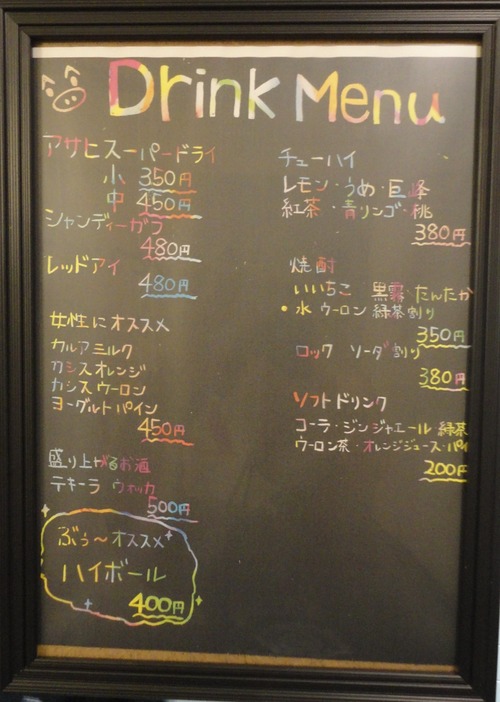 Drink Menu
アサヒスーパードライ
小 350円
中 450円
シャンディーガフ
480円
レッドアイ
480円
女性にオススメ
カルアミルク
カシスオレンジ
カシスウーロン
ヨーグルトパイン
450円
盛り上がるお酒
テキーラ ウォッカ
500円
ぶぅ〜オススメ
ハイボール
400円
チューハイ
レモン・うめ・巨峰
紅茶・青リンゴ・桃
380円
焼酎
いいちこ 黒霧・たんたか
・水 ウーロン 緑茶割り
350円
ロック ソーダ割り
380円
ソフトドリンク
コーラ・ジンジャエール 緑茶
ウーロン茶・オレンジジュース・パイ
200円